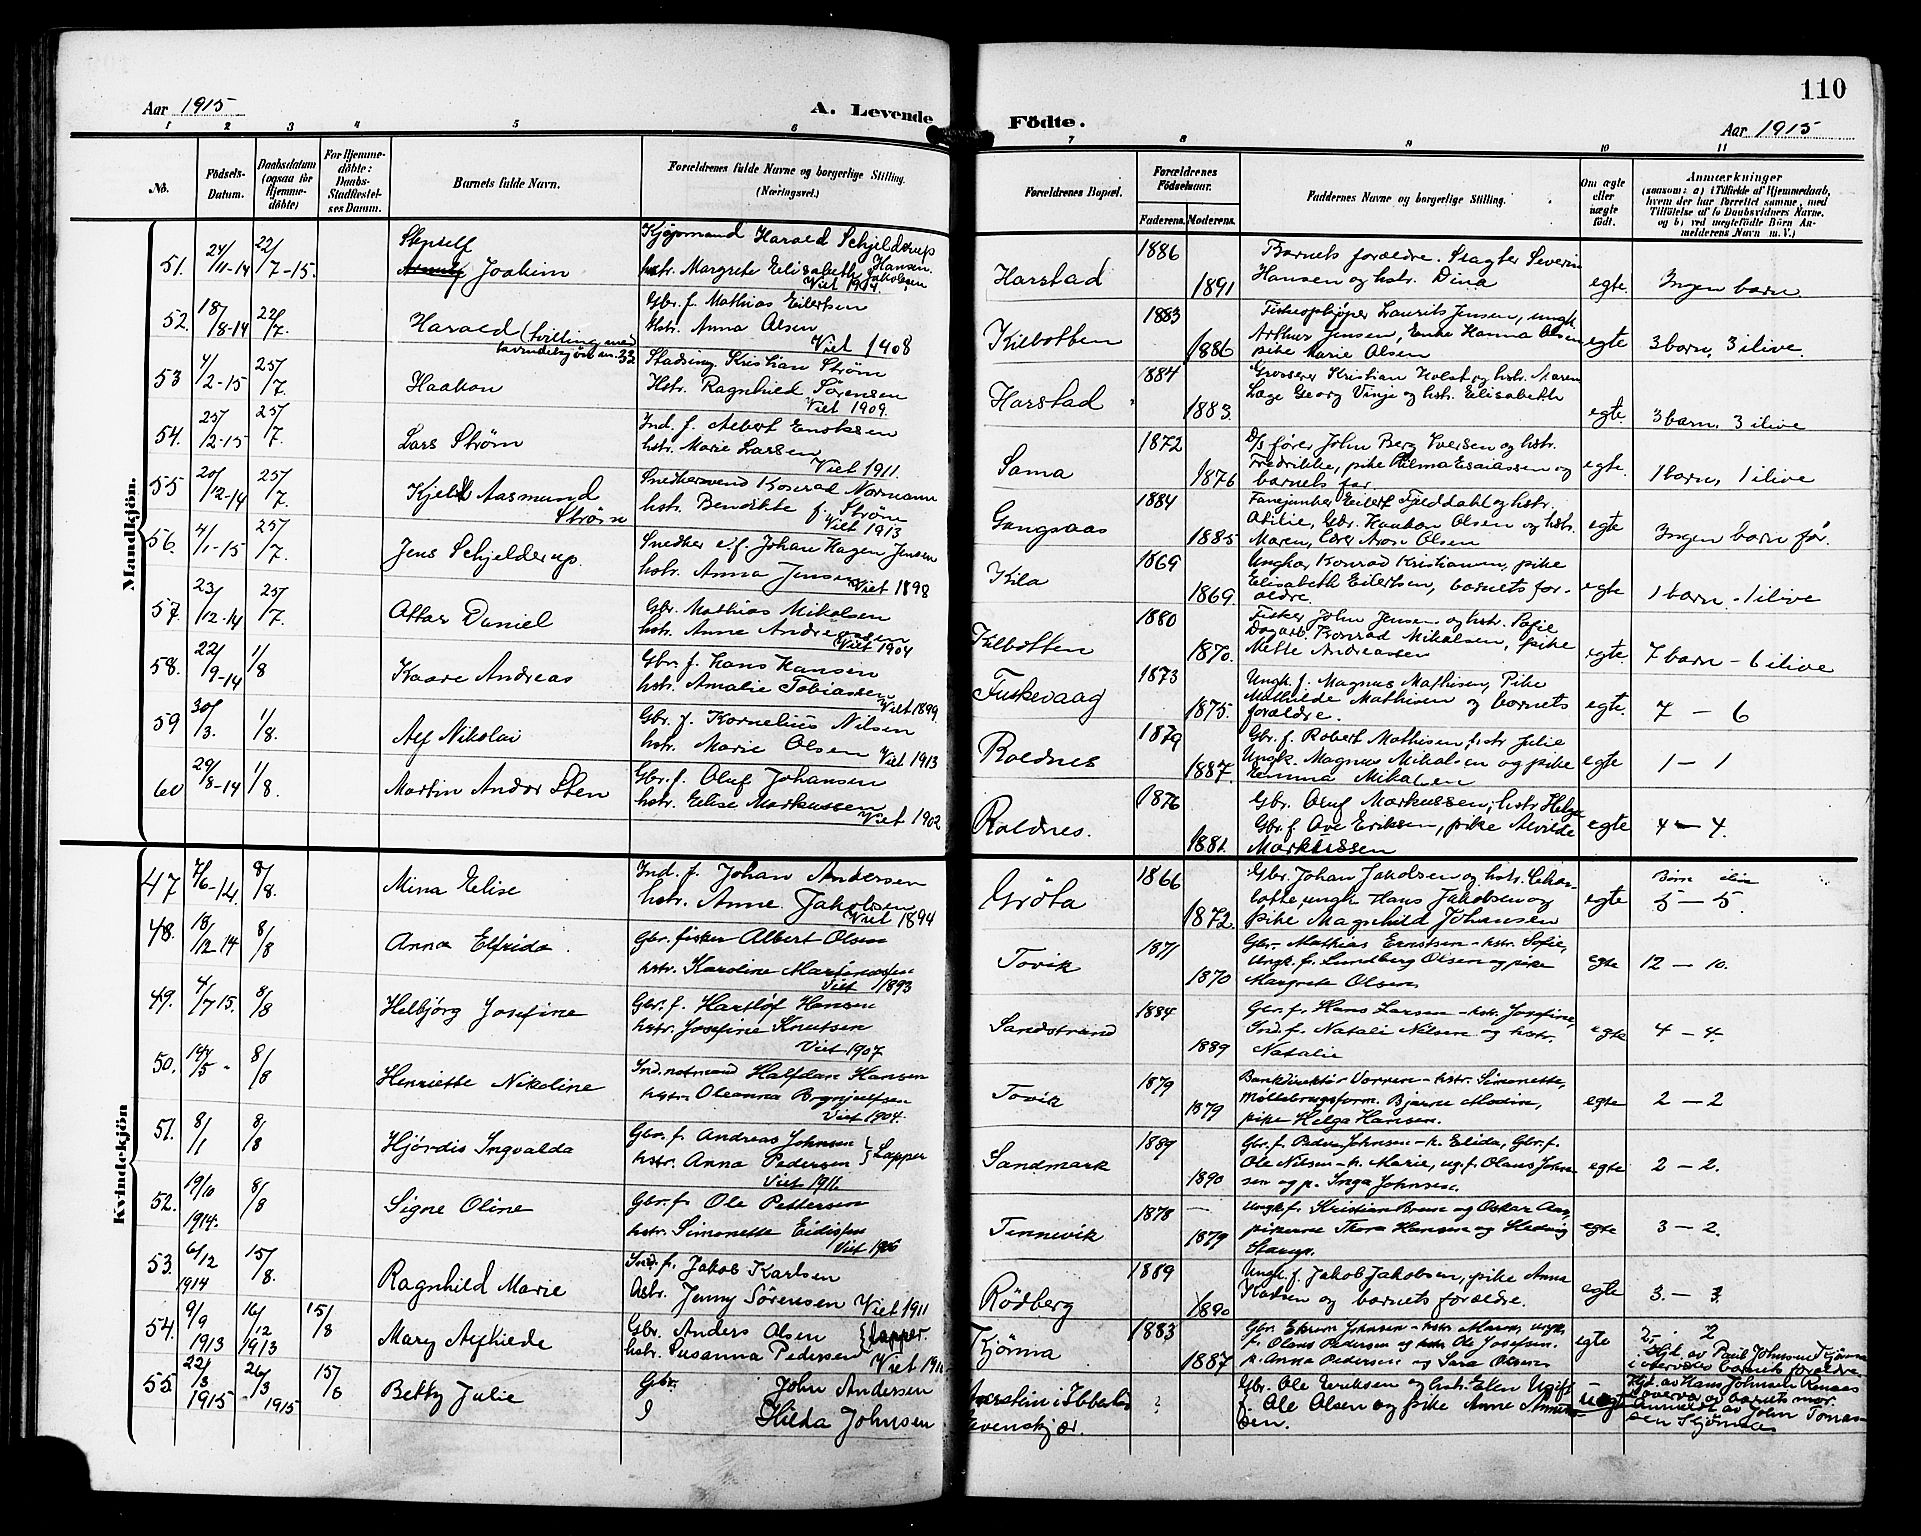 110
Aar 1915
A. Levende Födte.
Aar 1915
1 2 3 4 5 6 7 8 9 10 11
No.
Födsels-Datum.
Daabsdatum (ogsaa for Hjemme-döbte)
For Hjemme-döbte: Daabs-Stadfæstelses Datum.
Barnets fulde Navn.
Forældrenes fulde Navne og borgerlige Stilling. (Næringsvei.)
Forældrenes Bopæl.
Forældrenes Födselsaar.
Faderens. Moderens.
Faddernes Navne og borgerlige Stilling.
Om ægte eller uægte födt.
Anmærkninger
(saasom: a) i Tilfælde af Hjemmedaab, hvem der har forrettet samme, med Tilföielse af to Daabsvidners Navne, og b) ved uægtefödte Börn Anmelderens Navn m. V.)
Mandkjön.
51. 24/11-14 22/7-15. Joakim
Kjøpmand Harald Schjelderup Hansen
hstr. Margrete Elisabeth Jakobsen
Viet 1914.
Harstad 1886 1891
Barnets forældre. Slagter Severin
Hansen og hstr. Dina
egte. Ingen barn.
52. 18/8-14 22/7. Harald (tvilling med kvindekjøn nr. 33
Gbr. f. Mathias Eilertsen
hstr. Anna Olsen
Viet 1908
Kilbotten 1883 1886
Fiskeopkjøper Laurits Jensen, ungk.
Arthur Jensen, Enke Hanna Olsen
pike Marie Olsen
egte 3 barn, 3 ilive.
53 4/2-15 25/7. Haakon
Stadsing. Kristian Strøm
Hstr. Ragnhild Sørensen
Viet 1909.
Harstad 1884 1883.
Grosserer Kristian Holst og hstr. Maren
Læge Georg Vinje og hstr. Elisabeth
egte 3 barn, 3 ilive
54. 25/2-15 25/7. Lars Strøm
Ind. f. Albert Enoksen
hstr. Marie Larsen
Viet 1911.
Sama 1872 1876
D/s fører John Berg Iversen og hstr.
Fredrikke, pike Hilma Esaiassen og
barnets far.
egte. 1 barn, 1 ilive
55 20/12-14 25/7. Kjell Aasmund Strøm
Snedkersvend Konrad Normann
hstr. Benedikte f. Strøm
Viet 1913
Gangsaas 1884 1885
Fanejunker Eilert Fjelddahl og hstr.
Otilie, Gbr. Haakon Olsen og hstr.
Maren, Lærer Aron Olsen
egte Ingen barn før.
56. 4/1-15 25/7. Jens Schjelderup.
Snedker e.f. Johan Hagen Jensen
hstr. Anna Jensen
Viet 1898
Kila 1869 1869.
Ungkar Konrad Kristiansen, pike
Elisabeth Eilertsen, barnets for-
ældre.
egte 1 barn - 1 ilive
57. 23/12-14 25/7. Ottar Daniel
Gbr. Mathias Mikalsen
hstr. Anne Andreassen
Viet 1904
Kilbotten 1880 1870.
Fisker John Jensen og hstr. Sofie
Dagarb. Konrad Mikalsen, pike
Mette Andreassen
egte 7 barn - 6 ilive
58. 22/9-14 1/8 Kaare Andreas
Gbr. f. Hans Hansen
hstr. Amalie Tobiassen
Viet 1899.
Fuskevaag 1873 1875.
Ungk. f. Magnus Mathisen, Pike
Mathilde Mathisen og barnets
forældre.
egte. 7 - 6
59 30/3. 1/8. Alf Nikolai
Gbr. f. Kornelius Nilsen
hstr. Marie Olsen Viet 1913
Roldnes 1879 1887.
Gbr. f. Robert Mathisen, hstr Julie
Ungk. Magnus Mikalsen og pike
Emma Mikalsen
egte 1 - 1
60 29/8-14 1/8. Martin Andor Sten
Gbr. f. Oluf Johansen
hstr. Elise Markussen
Viet 1902
Roldnes. 1876 1881.
Gbr. Oluf Markussen, hstr Helga
Gbr. f. Ove Eriksen, pike Alvilde
Markussen
egte 4 - 4.
Kvindekjön
47 7/6-14. 8/8. Mina Elise
Ind. f. Johan Andersen
hstr. Anne Jakobsen
Viet 1894
Grøta 1866 1872.
Gbr. Johan Jakobsen og hstr. Char-
lotte, ungk. Hans Jakobsen og
pike Magnhild Johansen
egte Børn ilive
5 - 5.
48. 18/12 14 8/8 Anna Elfrida.
Gbr. fisker Albert Olsen
hstr. Karoline Martinussen
Viet 1893
Tovik 1871 1870
Gbr. Mathias Ernstsen - hstr. Sofie,
Ungk. f. Lundberg Olsen og pike
Margrete Olsen
egte 12 - 10.
49. 4/7 15. 8/8 Helbjørg Josefine
Gbr. f. Hartlof Hansen
hstr. Josefine Knutsen
Viet 1907
Sandstrand 1884 1889
Gbr. f. Hans Larsen - hstr. Josefine,
Ind. f. Natali Nilsen og hstr.
Natalie
egte 4 - 4.
50. 14/5 " 8/8 Henriette Nikoline
Ind. notmand Halfdan Hansen
hstr. Oleanna Brynjulfsen
Viet 1904.
Tovik 1879 1879
Bankdirektør Vorren - hstr. Simonette,
Møllebrugsform. Bjarne Modin,
pike Helga Hansen.
egte 2 - 2
51. 8/1 8/8 Hjørdis Ingvalda
Gbr. f. Andreas Johnsen
hstr. Anna Pedersen } Lapper
Viet 1911
Sandmark 1889 1890
Gbr. f. Peder Johnsen - h. Elida, Gbr. f.
Ole Nilsen - h. Marie, ug. f. Olaus John-
sen og p. Inga Johnsen.
egte 2 - 2.
52. 19/10 1914. 8/8 Signe Oline
Gbr. f. Ole Pettersen
hstr. Simonette Eidissen
Viet 1906
Tennevik 1878 1879
Ungk. f. Kristian Brun og Oskar Aas,
pikerne Thora Hansen og Hedvig
Starup.
egte 3 - 2.
53. 6/12 1914 15/8. Ragnhild Marie
Ind. f. Jakob Karlsen
hstr. Jenny Sörensen Viet 1911
Rödberg 1889 1890
Ungk. f. Jakob Jakobsen, pike Anna
Karlsen og barnets forældre.
egte 3. - 3.
54. 9/9 1913 16/12 1913 15/8 Mary Alfhilde
Gbr. Anders Olsen
hstr. Susanna Pedersen } Lapper.
Kjönna 1883 1887
f. Olaus Pedersen og hstr Ole Josefsen.
p. Anna Pedersen og Sara Olsen
egte 2 - 2
Hjd. av Paul Johnsen Kjönna
i overvær barnets forældre
55. 22/3 1915 26/3 1915 15/8 Betty Julie
Gbr. John Andersen
Hilda Johnsen
i Ibbestad
?
Gbr. Ole Eriksen og hstr. Elen Ugift
f. Ole Olsen og pike Anne
uegte
Hjd. av Hans Johnsen
og barnets mor.
Anmeldt av John Tomas-
sen